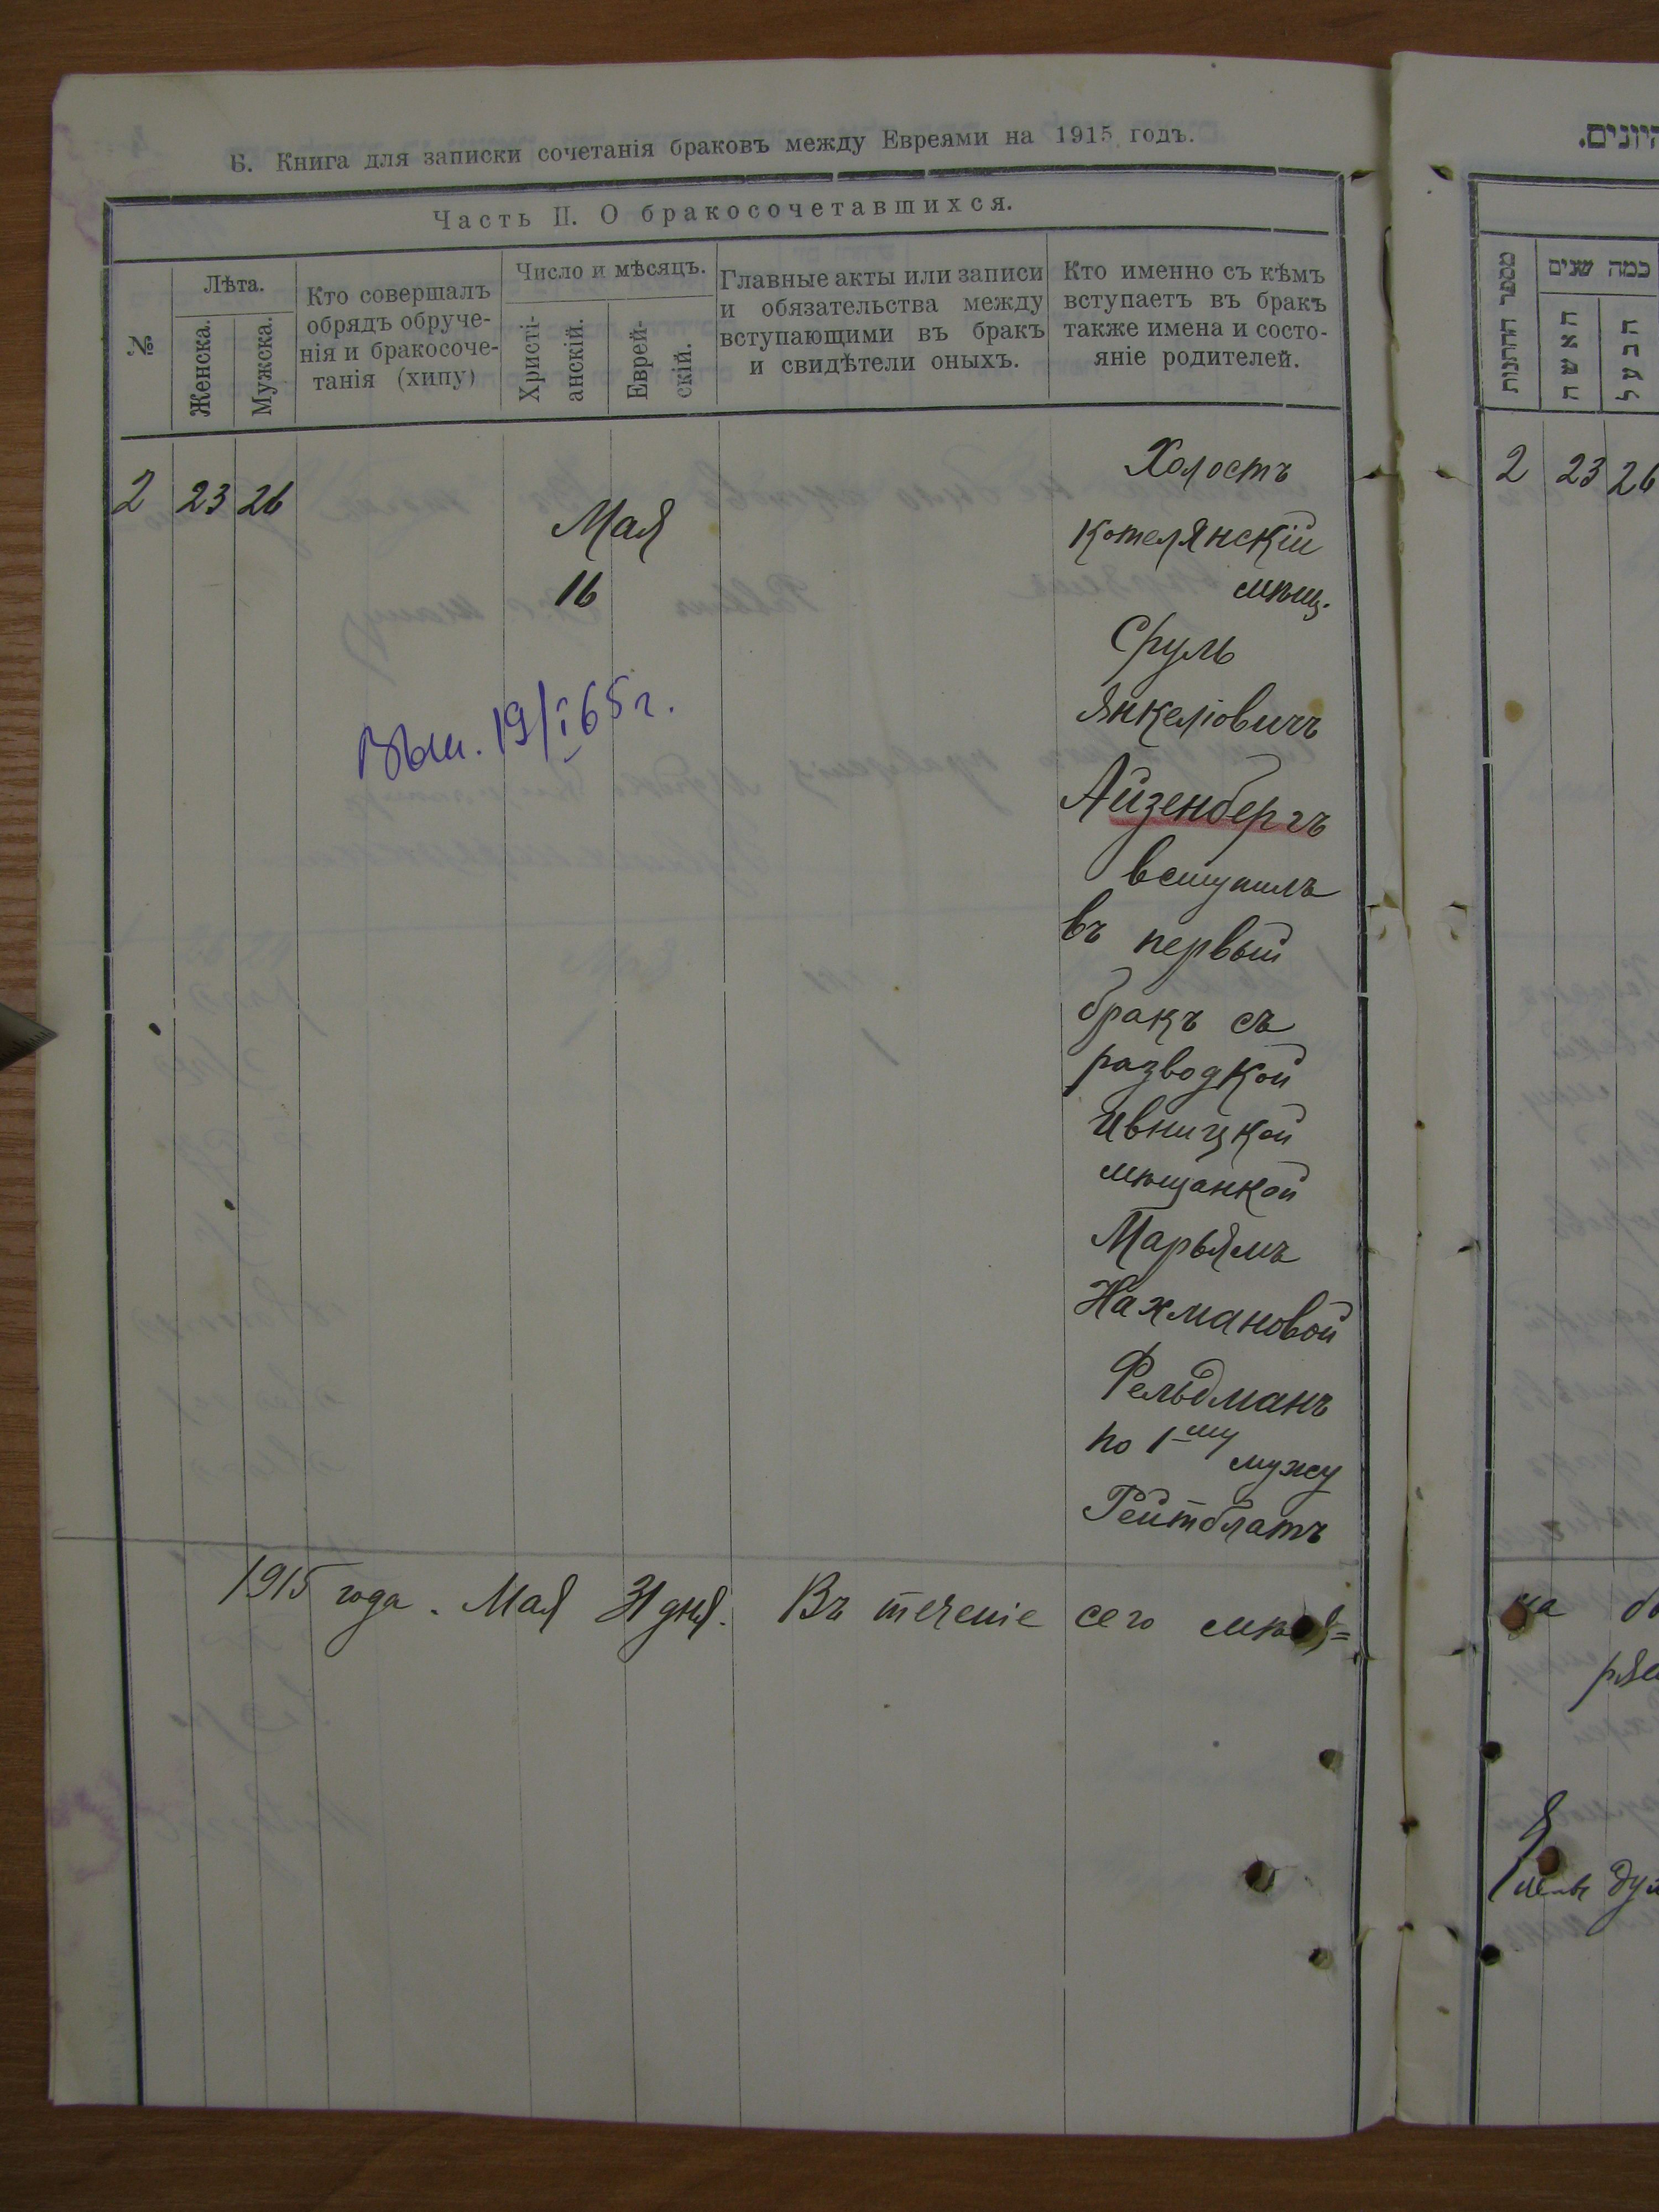 Б. Книга для записки сочетанія браковъ между Евреями на 1915 годъ.
Часть II. О бракосочетавшихся.
№
Лѣта.
Женска.
Мужска.
Кто совершалъ
обрядъ обруче-
нія и бракосоче-
танія (хипу)
Число и мѣсяцъ.
Христі-
анскій.
Еврей-
скій.
Главные акты или записи
и обязательства между
вступающими въ бракъ
и свидѣтели оныхъ.
Кто именно съ кѣмъ
вступаетъ въ бракъ
также имена и состо-
яніе родителей.
2 23 26
Мая
16
Холостъ
котелянскій
мѣщ.
Сруль
Янкеліовичъ
Айзенбергъ
вступилъ
въ первый
бракъ съ
разводкой
Ивницкой
мѣщанкой
Марьямъ
Нахмановой
Фельдманъ
по 1-му
мужу
Рейтблатъ
19/I 65 г.
1915 года. Мая 31 дня. Въ теченіе сего
מספר החתונות
כמה שנים
האשה
הבעל
2 23 26